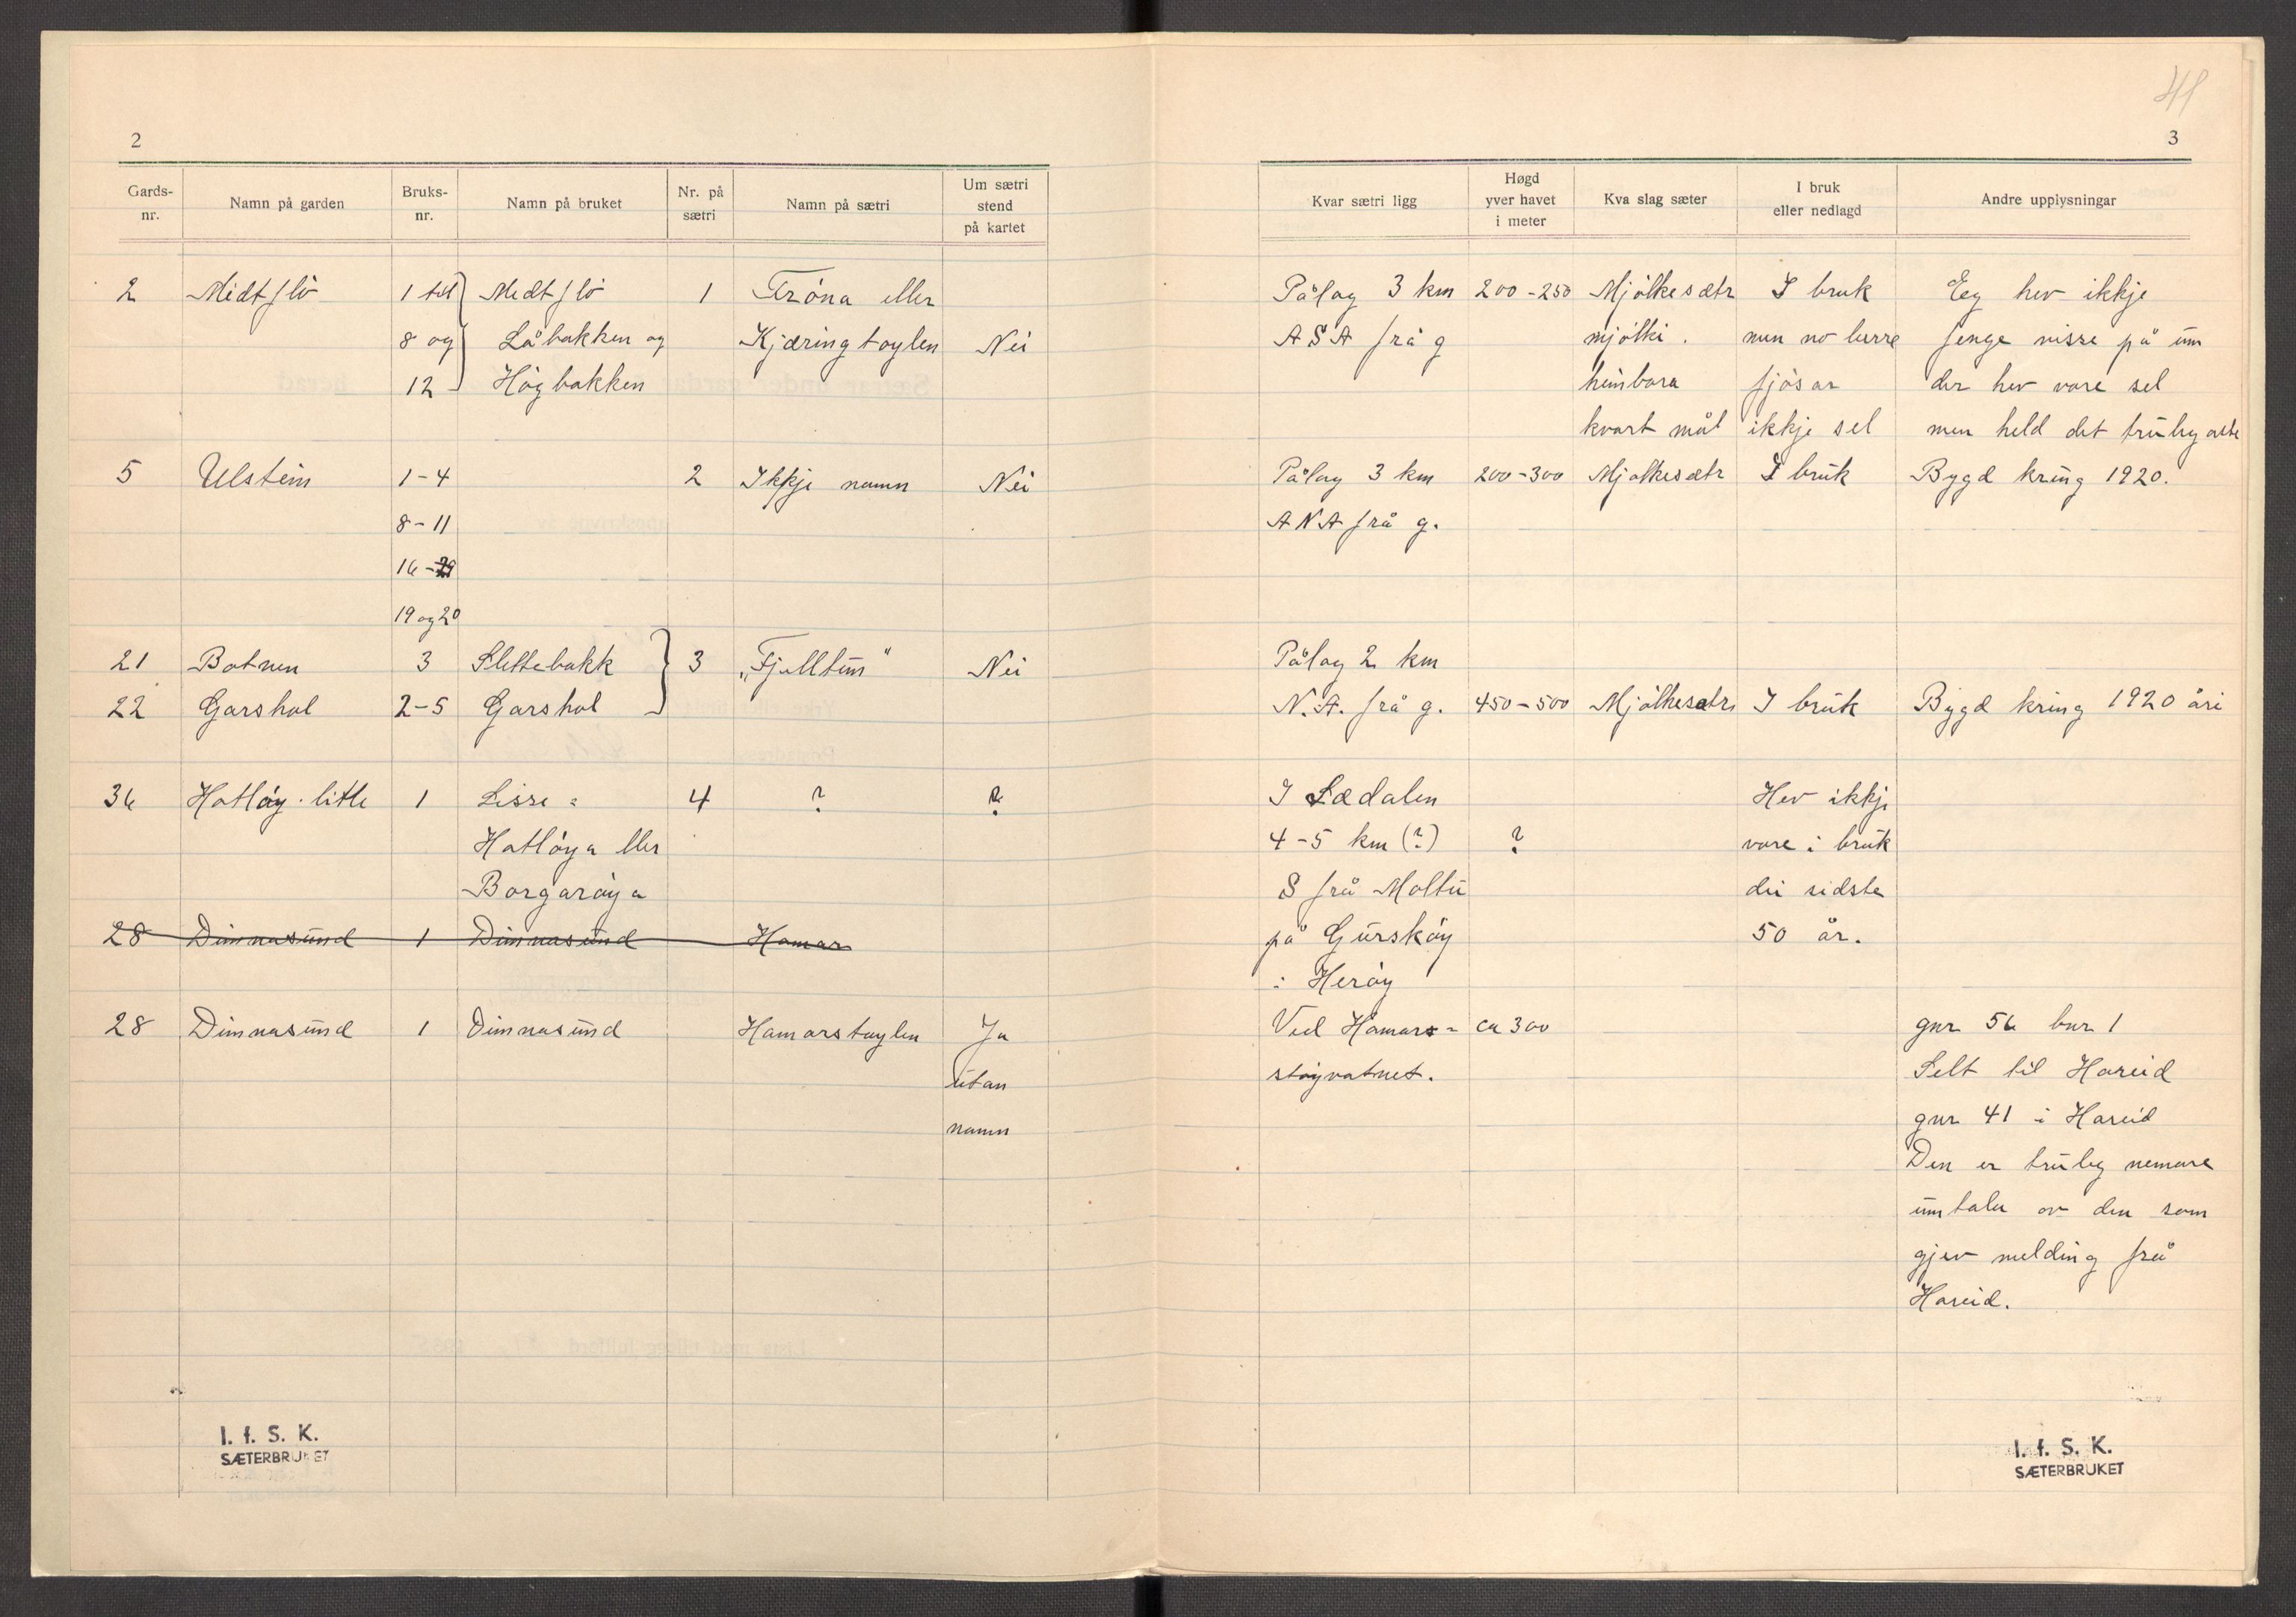 2
Gards-nr.
Namn på garden
Bruks-nr.
Namn på bruket
Nr. på sætri
Namn på sætri
Um sætri stend på kartet
2 Midtflö 1 til Medtflö 1 Tróna eller
8 og Låbakken og Kjæringtoylen Nei
12 Högbakken
5 Ulstein 1-4 2 Ikkje namn Nei
8-11
16-
19 og 20
21 Botnen 3 Slettebakk 3 „Fjelltun“ Nei
22 Garshol 2-5 Garshol
36 Hatlöy. litle 1 Lisse = 4 ? ?
Hatlöya ller
Borgaröya
28 Dimnasund 1 Dimnasund Hamar
28 Dimnasund 1 Dimnasund Hamarstøylen Ja
utan
namn
I. f. S. K.
SÆTERBRUKET
41
3
Kvar sætri ligg
Høgd yver havet i meter
Kva slag sæter
I bruk eller nedlagd
Andre upplysningar
Pålag 3 km 200-250 Mjölkesætr I bruk Eg hev ikkje
A S A frå g mjölki. men no berre fenge visse på um
heimbora fjösar der hev vore sel
kvart mål ikkje sel men held det truleg
Pålag 3 km 200-300 Mjølkesætr I bruk Bygd kring 1920.
A N A frå g.
Pålag 2 km
N. A. frå g. 450-500 Mjölkesætr I bruk Bygd kring 1920 åri
I Lædalen Hev ikkje
4-5 km (?) ? vore i bruk
S frå Moltu dei sidste
på Gurskøy 50 år.
i Herøy
Ved Hamars- ca 300 gnr 56 bnr 1
støyvatnet. Selt til Hareid
gnr 41 i Hareid
Den er truleg nemare
umtala av den som
gjev melding frå
Hareid.
I. f. S. K.
SÆTERBRUKET